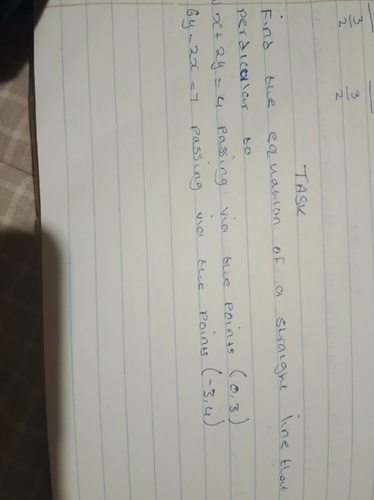 3/2 3/2
TASK
Find the equation of a straight line that
perdicular to
x + 2y = 4 passing via the points (0,3)
6y - 2x = 7 passing via the points (-3,4)